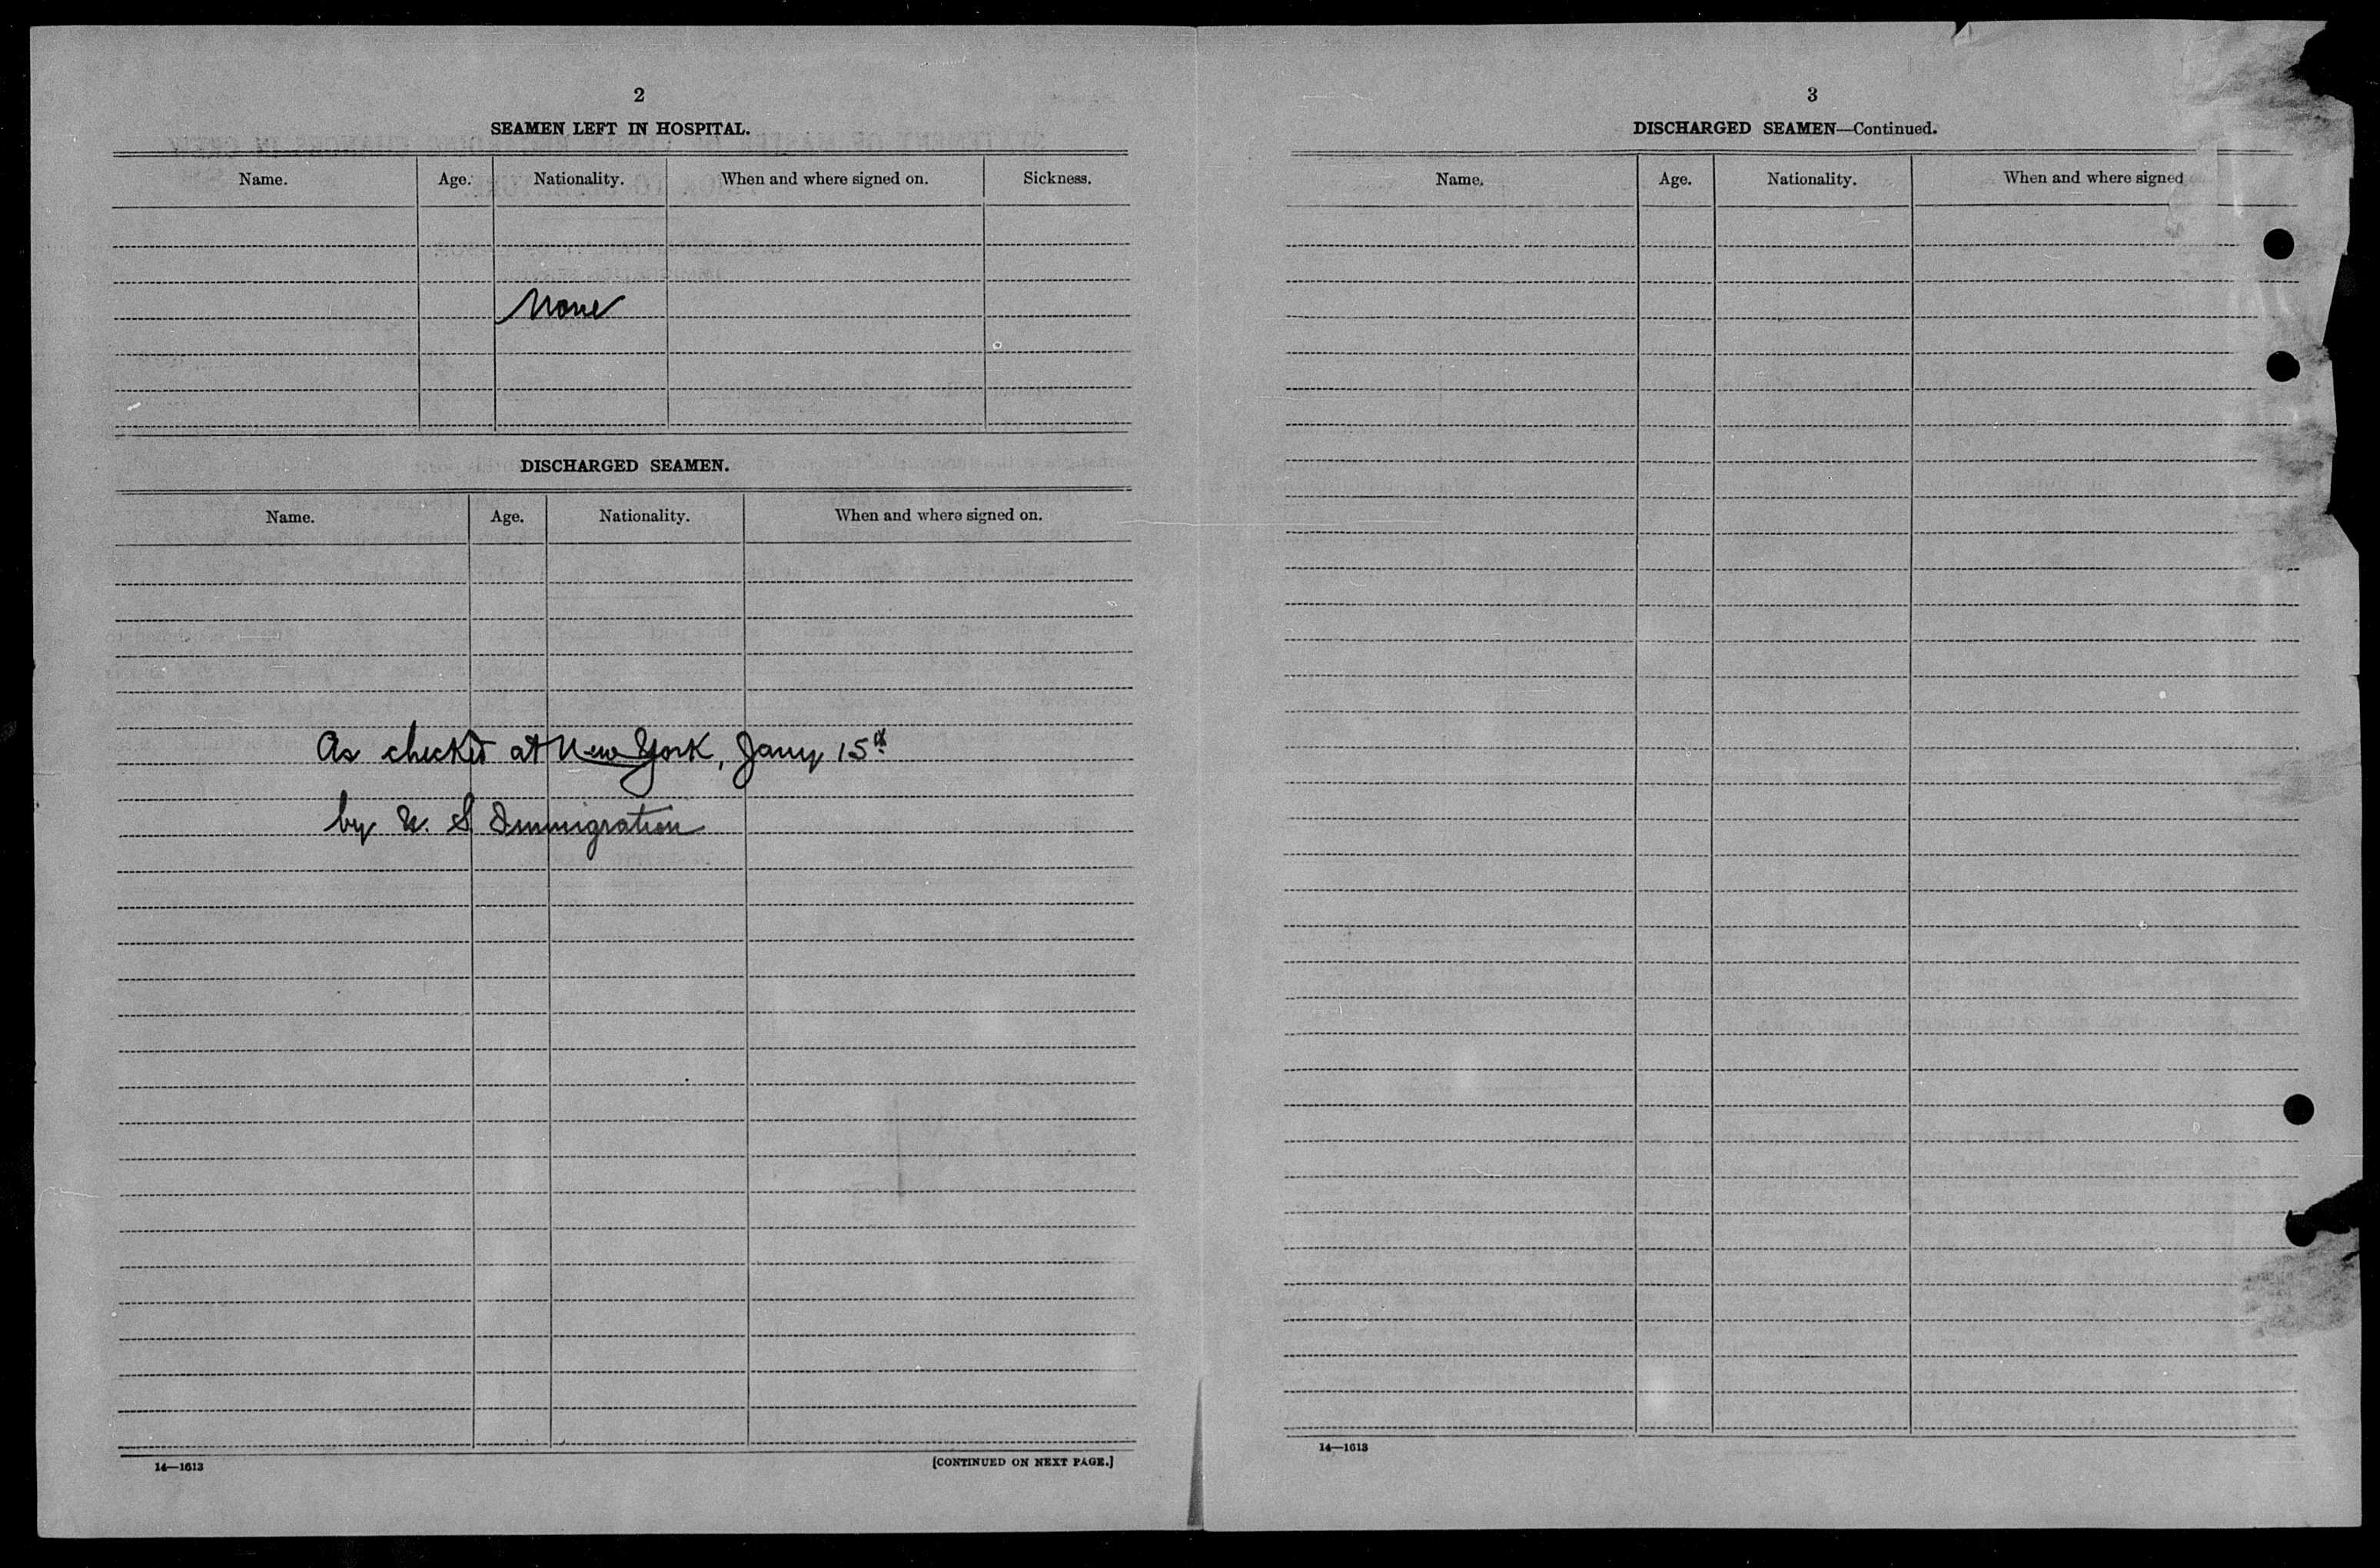 2
SEAMEN LEFT IN HOSPITAL.
Name. Age. Nationality. When and where signed on. Sickness.
None
DISCHARGED SEAMEN.
Name. Age. Nationality. When and where signed on.
As checked at New York, Jany 15th
by U. S. Immigration
14—1613 [CONTINUED ON NEXT PAGE.]
3
DISCHARGED SEAMEN—Continued.
Name. Age. Nationality. When and where signed
14—1613